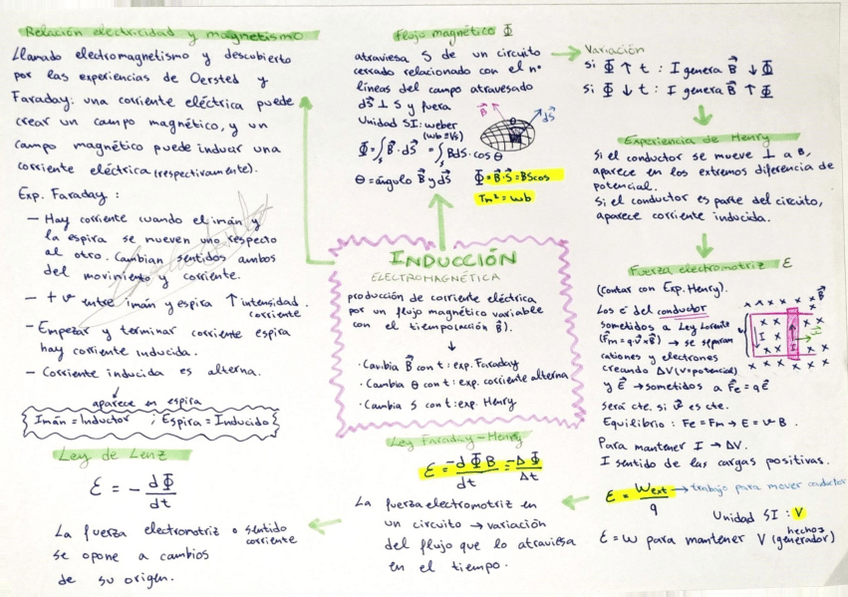 Relación electricidad y magnetismo
Llamado electromagnetismo y descubierto
por las experiencias de Oersted y
Faraday: una corriente eléctrica puede
crear un campo magnético, y un
campo magnético puede inducir una
corriente eléctrica (respectivamente).
Exp. Faraday :
– Hay corriente cuando el imán y
la espira se mueven uno respecto
al otro. Cambian sentidos ambos
del movimiento y corriente.
– + v entre imán y espira ↑ intensidad
corriente
– Empezar y terminar corriente espira
hay corriente inducida.
– Corriente inducida es alterna.
aparece en espira
Imán = Inductor ; Espira = Inducido
Ley de Lenz
ε = - dΦ/dt
La fuerza electromotriz o sentido
corriente
se opone a cambios
de su origen.
Flujo magnético Φ
atraviesa S de un circuito
cerrado relacionado con el nº
líneas del campo atravesado
dS⃗ ⊥ S y fuera
Unidad SI: weber
(wb = Vs)
B⃗
dS⃗
Φ = ∫s B⃗ · dS⃗ = ∫s BdS · cos θ
θ = ángulo B⃗ y dS⃗ Φ = B⃗·S⃗ = BScos
Tm² = wb
INDUCCIÓN
ELECTROMAGNÉTICA
producción de corriente eléctrica
por un flujo magnético variable
con el tiempo (acción B⃗).
↓
· Cambia B⃗ con t: exp. Faraday
· Cambia θ con t: exp. corriente alterna
· Cambia S con t: exp. Henry
Ley Faraday – Henry
ε = -dΦB/dt = -ΔΦ/Δt
La fuerza electromotriz en
un circuito → variación
del flujo que lo atraviesa
en el tiempo.
Variación
Si Φ ↑ t : I genera B⃗ ↓ Φ
Si Φ ↓ t : I genera B⃗ ↑ Φ
Experiencia de Henry
Si el conductor se mueve ⊥ a B,
aparece en los extremos diferencia de
potencial.
Si el conductor es parte del circuito,
aparece corriente inducida.
Fuerza electromotriz ε
(Contar con Exp. Henry).
Los e⁻ del conductor
sometidos a Ley Lorentz
(F⃗m = q·v⃗×B⃗) → se separan
cationes y electrones
creando ΔV (V=potencial)
y E⃗ → sometidos a F⃗e = qE⃗
B⃗
I
I
será cte. si v⃗ es cte.
Equilibrio : Fe = Fm → E = v B .
Para mantener I → ΔV.
I sentido de las cargas positivas.
ε = Wext/q → trabajo para mover conductor
Unidad SI : V
ε = W para mantener V (generador)
hechos